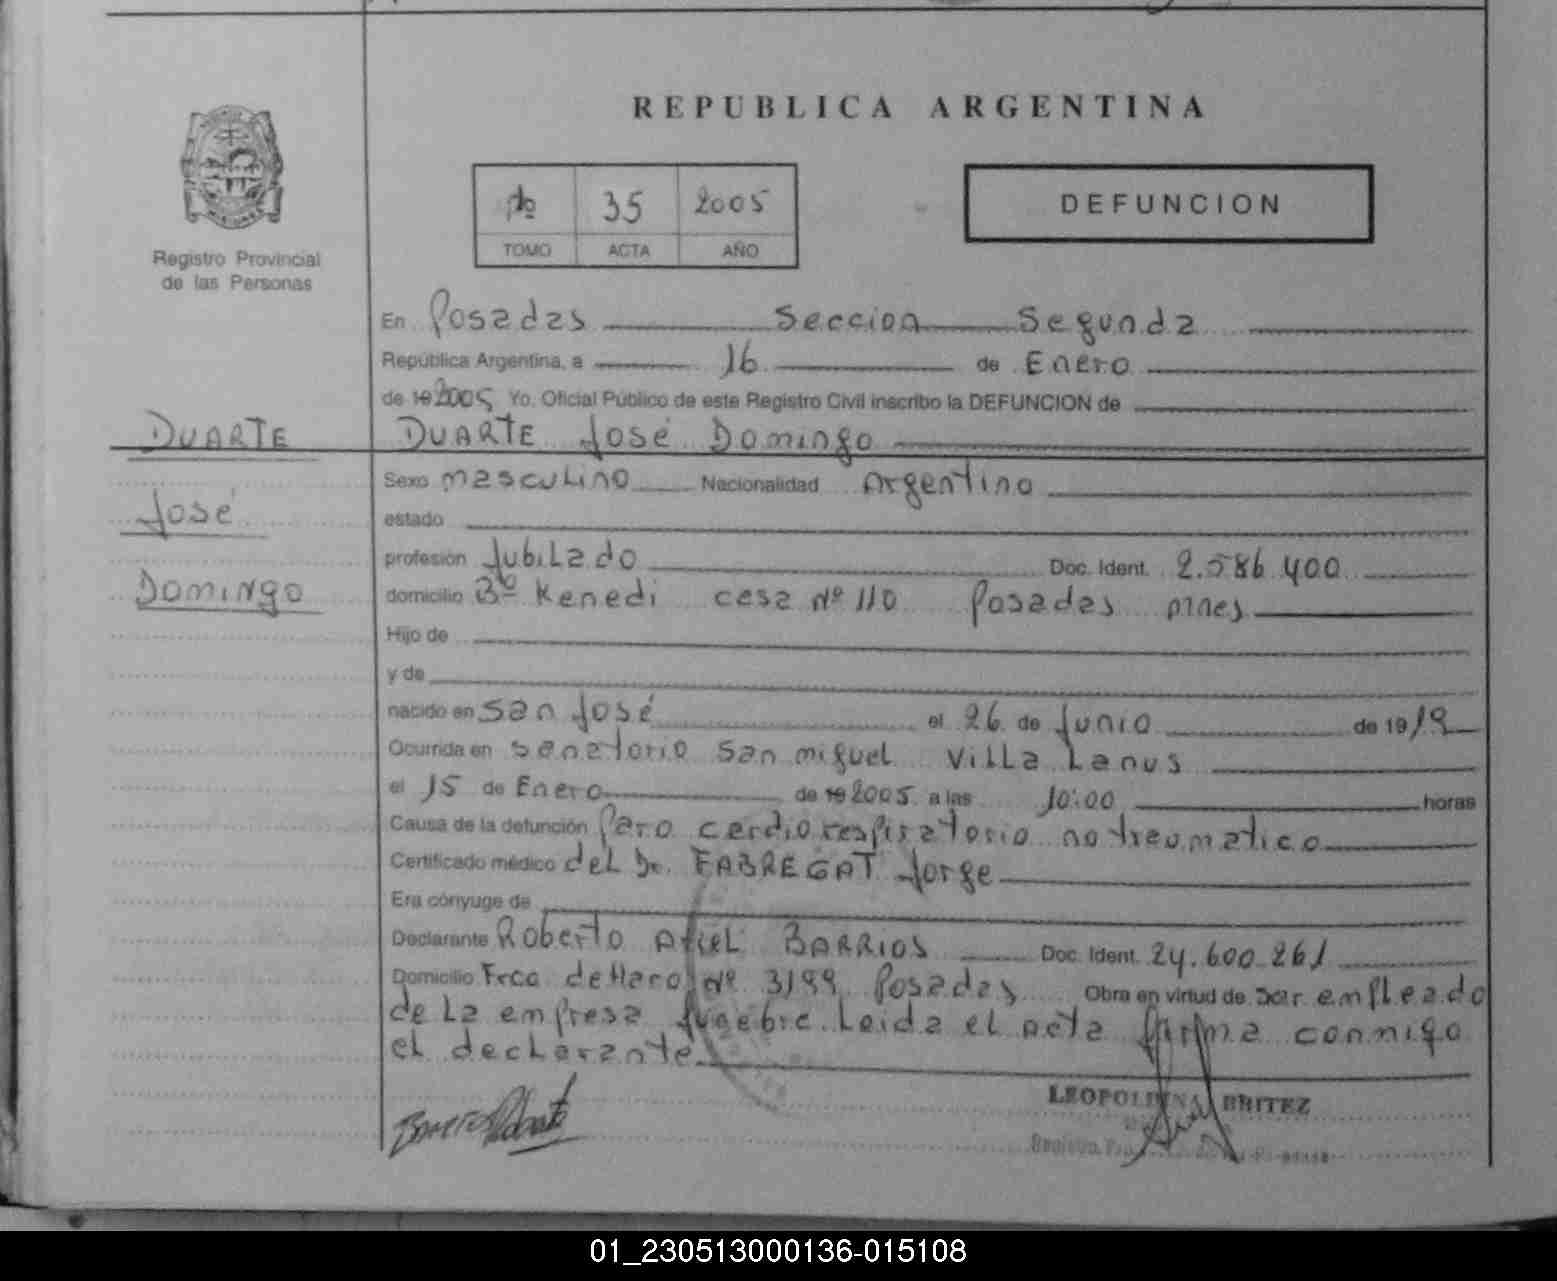 REPUBLICA ARGENTINA
1º 35 2005
TOMO ACTA AÑO
DEFUNCION
Registro Provincial
de las Personas
En Posadas Seccion Segunda
República Argentina, a 16 de Enero
de 19 2005 Yo, Oficial Público de este Registro Civil inscribo la DEFUNCION de
DUARTE José Domingo
DUARTE
José
Domingo
Sexo masculino Nacionalidad Argentino
estado
profesión Jubilado Doc. Ident. 2.586.400
domicilio Bº Kenedi casa Nº 110 Posadas mnes
Hijo de
y de
nacido en San José el 26 de Junio de 1919
Ocurrida en sanatorio San miguel Villa Lanus
el 15 de Enero de 19 2005 a las 10:00 horas
Causa de la defunción Paro cardiorespiratorio no traumatico
Certificado médico del Dr. FABREGAT Jorge
Era cónyuge de
Declarante Roberto Ariel BARRIOS Doc. Ident. 24.600.261
Domicilio Frco de Haro Nº 3199 Posadas Obra en virtud de ser empleado
de La empresa funebre. Leida el acta firma conmigo
el declarante
Barrios Roberto
LEOPOLDINA BRITEZ
01_230513000136-015108